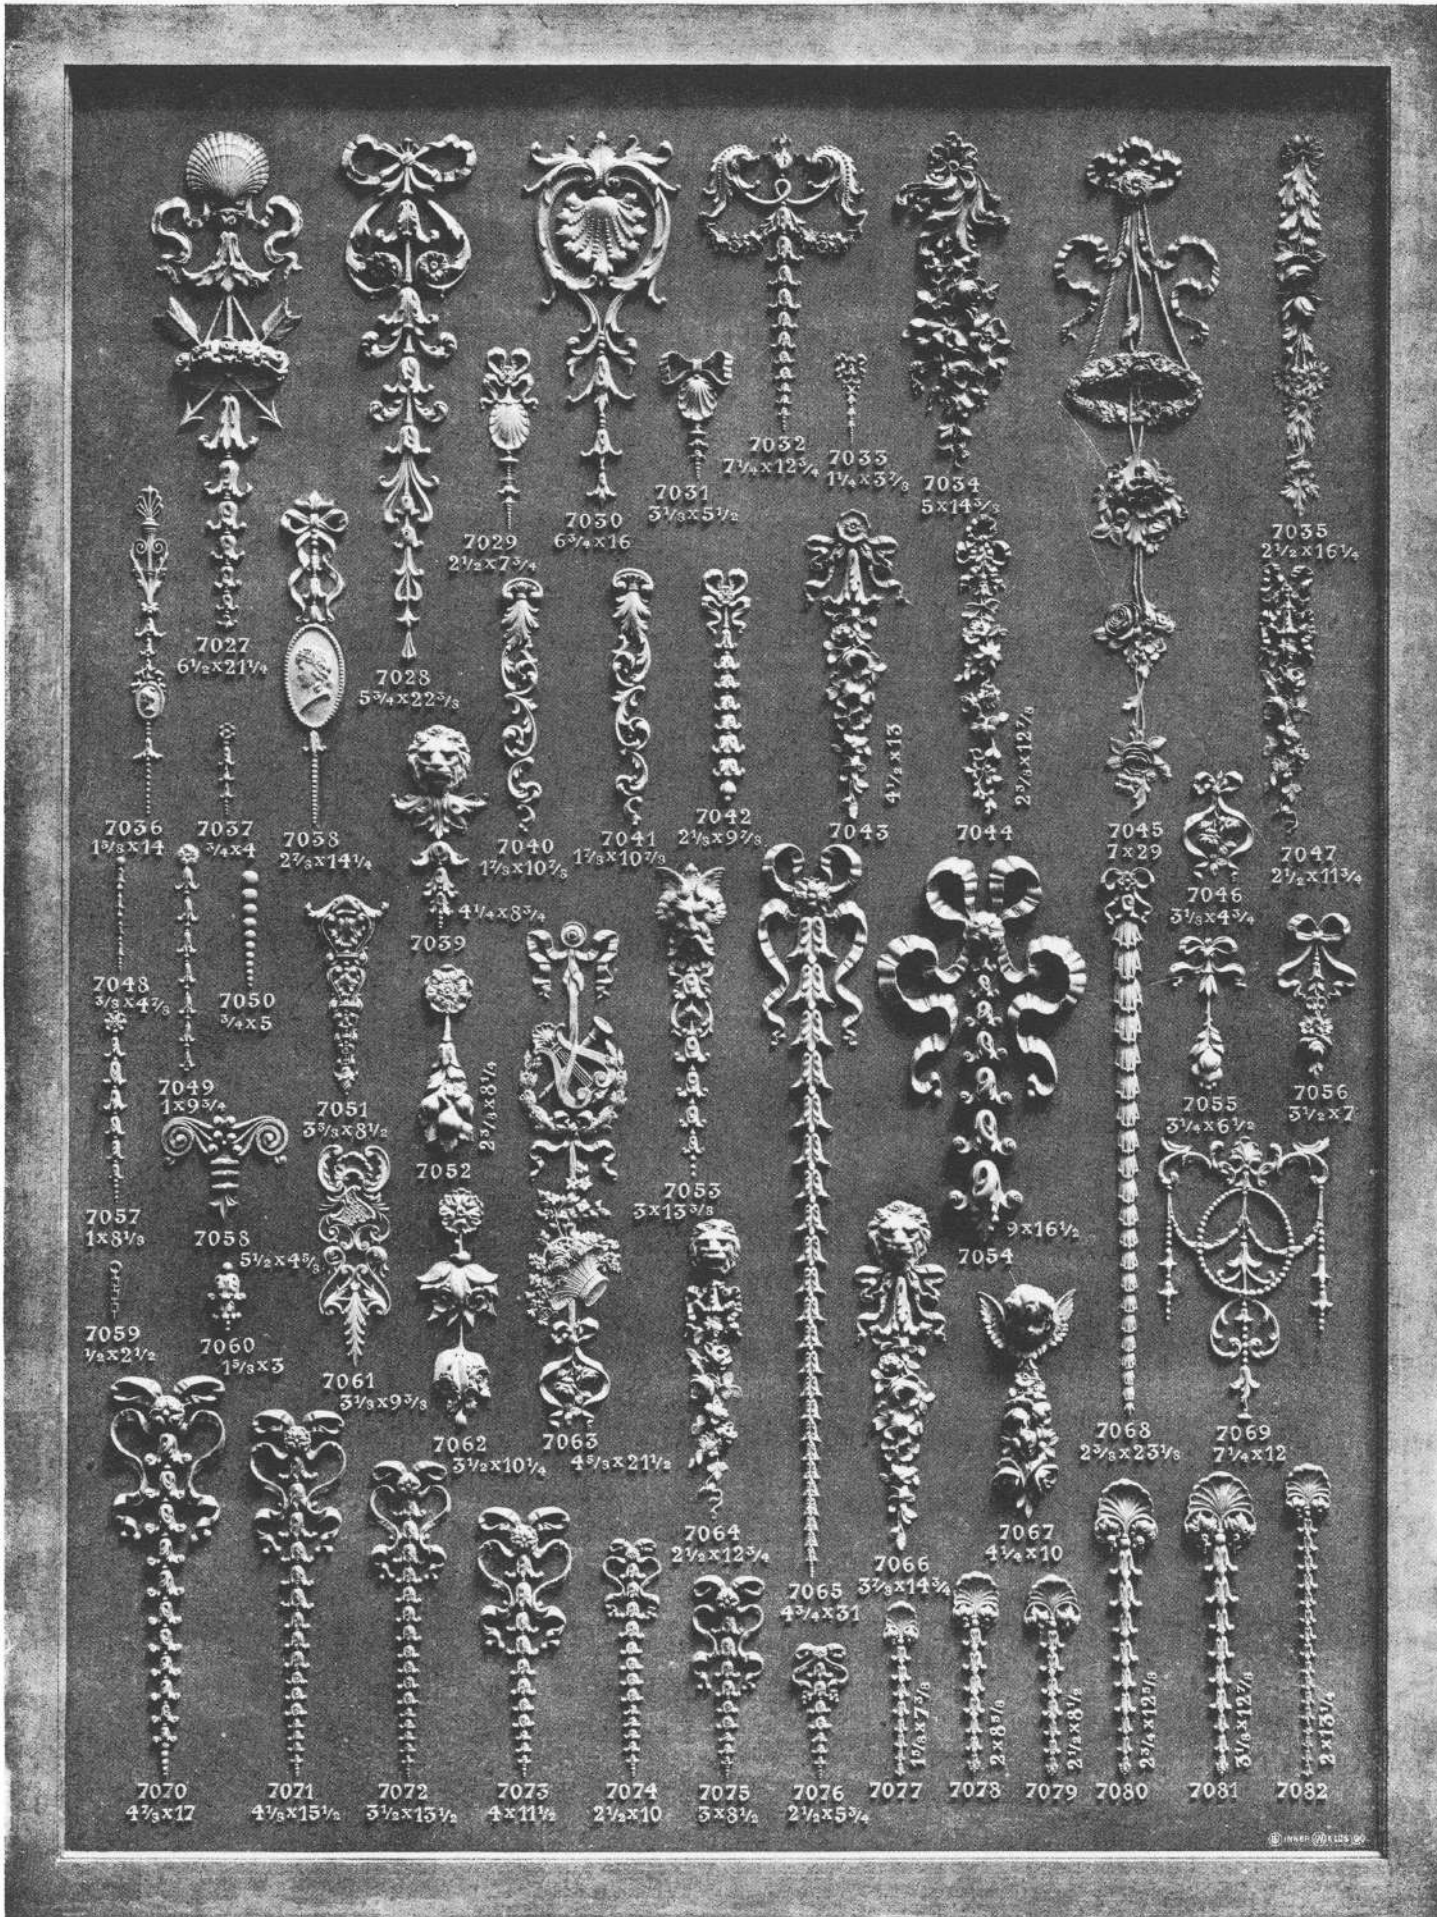 7032
7¼x12¾
7033
1¼x3⅞
7034
5x14⅜
7031
3⅛x5½
7030
6¾x16
7029
2½x7¾
7035
2½x16¼
7027
6½x21¼
7028
5¾x22⅜
7036
1⅝x14
7037
¾x4
7038
2⅞x14¼
7040
1⅞x10⅞
7041
1⅞x10⅞
7042
2⅛x9⅞
7043
4½x13
7044
2⅜x12⅞
7045
7x29
7046
3⅛x4¾
7047
2½x11¾
4¼x8¾
7039
7048
⅜x4⅞
7050
¾x5
7049
1x9¾
7051
3⅝x8½
7052
2⅜x8¼
7053
3x13⅜
7054
9x16½
7055
3¼x6½
7056
3½x7
7057
1x8⅛
7058
5½x4⅝
7059
½x2½
7060
1⅝x3
7061
3⅛x9⅜
7062
3½x10¼
7063
4⅝x21½
7064
2½x12¾
7065
4¾x31
7066
3⅞x14¾
7067
4¼x10
7068
2⅜x23⅛
7069
7¼x12
7070
4⅞x17
7071
4⅛x15½
7072
3½x13½
7073
4x11½
7074
2½x10
7075
3x8½
7076
2½x5¾
7077
1⅝x7⅜
7078
2x8⅝
7079
2⅛x8½
7080
2¾x12⅝
7081
3⅛x12⅞
7082
2x13¼